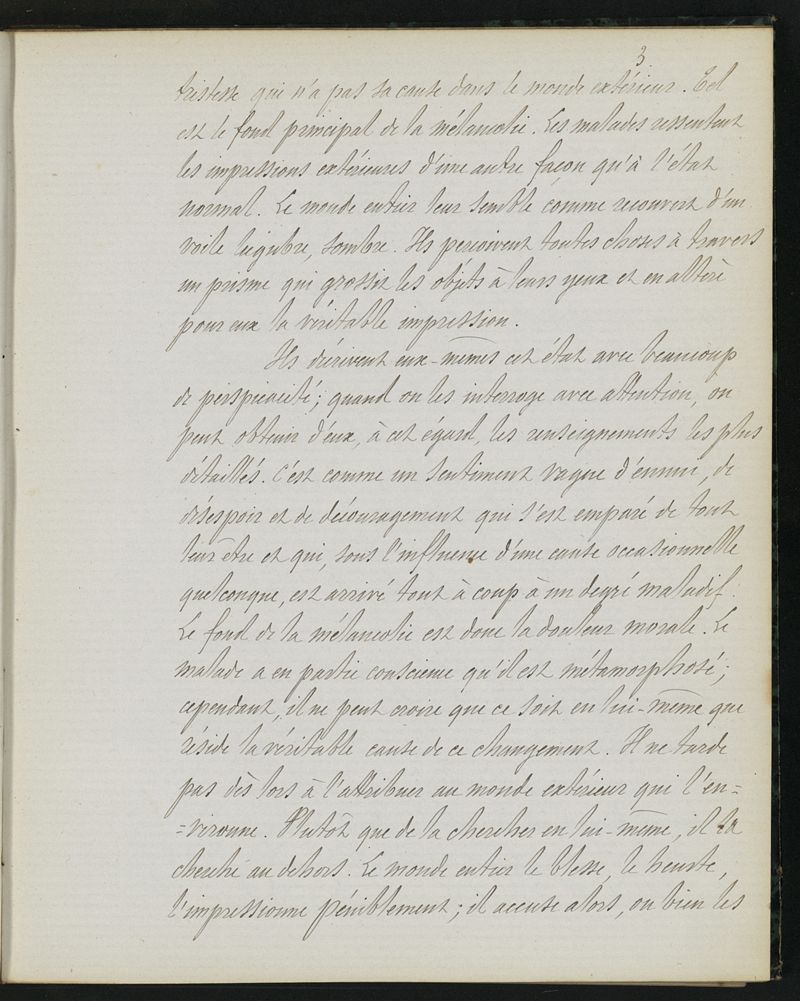 3
tristesse qui n'a pas sa cause dans le monde extérieur. Tel
est le fond principal de la mélancolie. Les malades ressentent
les impressions extérieures d'une autre façon qu'à l'état
normal. Le monde entier leur semble comme recouvert d'un
voile lugubre, sombre. Ils perçoivent toutes choses à travers
un prisme qui grossit les objets à leurs yeux et en altère
pour eux la véritable impression.
Ils décrivent eux-mêmes cet état avec beaucoup
de perspicacité; quand on les interroge avec attention, on
peut obtenir d'eux, à cet égard, les renseignements les plus
détaillés. C'est comme un sentiment vague d'ennui, de
désespoir et de découragement qui s'est emparé de tout
leur être et qui, sous l'influence d'une cause occasionnelle
quelconque, est arrivé tout à coup à un degré maladif.
Le fond de la mélancolie est donc la douleur morale. Le
malade a en partie conscience qu'il est métamorphosé;
cependant, il ne peut croire que ce soit en lui-même que
réside la véritable cause de ce changement. Il ne tarde
pas dès lors à l'attribuer au monde extérieur qui l'en=
=vironne. Plutôt que de la chercher en lui-même, il la
cherche au dehors. Le monde entier le blesse, le heurte,
l'impressionne péniblement; il accuse alors, ou bien les